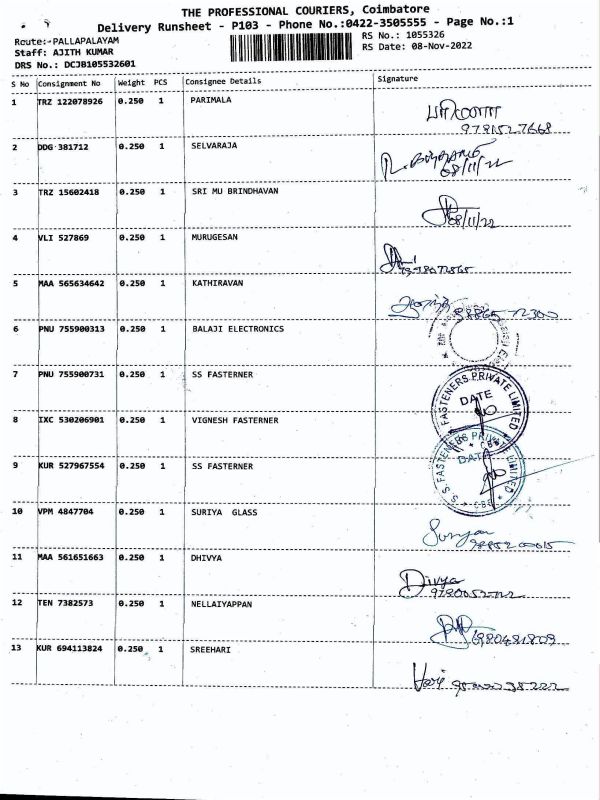 THE PROFESSIONAL COURIERS, Coimbatore
Delivery Runsheet - P103 - Phone No.:0422-3505555 - Page No.:1
Route:-PALLAPALAYAM
RS No.: 1055326
Staff: AJITH KUMAR
RS Date: 08-Nov-2022
DRS No.: DCJB105532601
S No Consignment No Weight PCS Consignee Details Signature
1 TRZ 122078926 0.250 1 PARIMALA
2 DDG 381712 0.250 1 SELVARAJA
08/11/22
3 TRZ 15602418 0.250 1 SRI MU BRINDHAVAN
08/11/22
4 VLI 527869 0.250 1 MURUGESAN
5 MAA 565634642 0.250 1 KATHIRAVAN
6 PNU 755900313 0.250 1 BALAJI ELECTRONICS
7 PNU 755900731 0.250 1 SS FASTERNER
FASTENERS PRIVATE LIMITED
DATE
8 IXC 530206901 0.250 1 VIGNESH FASTERNER
9 KUR 527967554 0.250 1 SS FASTERNER
S.S. FASTENERS PRIVATE LIMITED
DATE
10 VPM 4847704 0.250 1 SURIYA GLASS
11 MAA 561651663 0.250 1 DHIVYA
Divya
12 TEN 7382573 0.250 1 NELLAIYAPPAN
13 KUR 694113824 0.250 1 SREEHARI
Hari